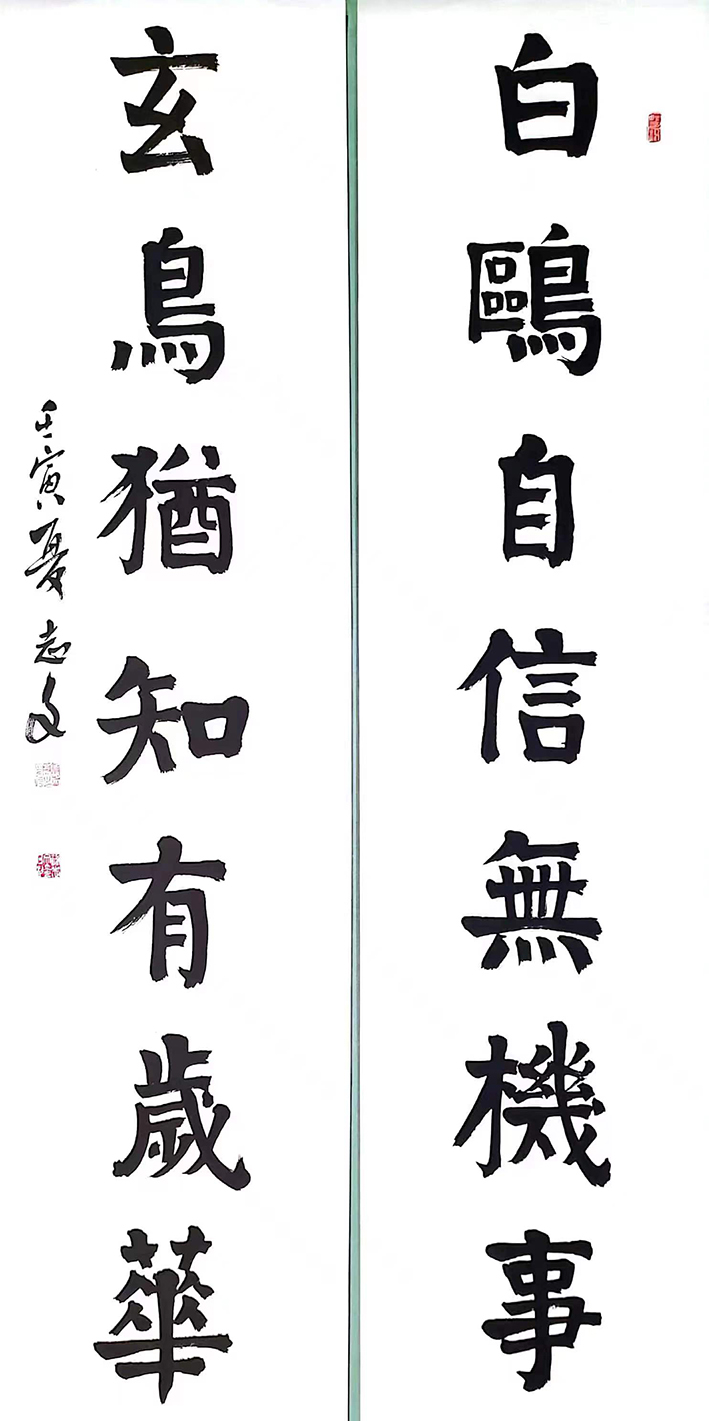 白鷗自信無機事
玄鳥猶知有歲華
壬寅夏志文